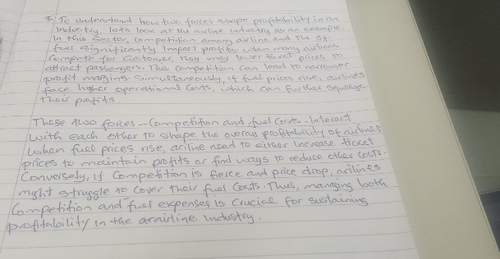 To understand how two forces shape profitability in an
Industry, let's look at the airline industry as an example.
In this Sector, Competition among airline and the
fuel significantly Impact profits. when many airlines
Compete for Customer, they may lower ticket prices to
attract passengers. This competition can lead to narrower
profit margins. Simultaneously, if fuel prices rise, airlines
face higher operational Costs, which can further squeeze
their profits.
These two forces - Competition and fuel Costs - Interact
with each other to shape the overall profitability of airlines
when fuel prices rise, ariline need to either Increase ticket
prices to maintain profits or find ways to reduce other Costs.
Conversely, if Competition is fierce and price drop, arilines
might struggle to Cover their fuel Costs. Thus, managing both
Competition and fuel expenses is Crucial for sustaining
profitability in the arairline Industry.